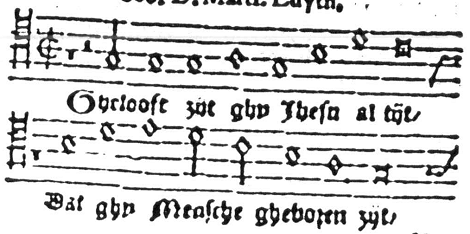 D. Mart. Luyth.
Ghelooft zyt ghy Jhesu al tijt/
Dat ghy Mensche gheboren zijt/